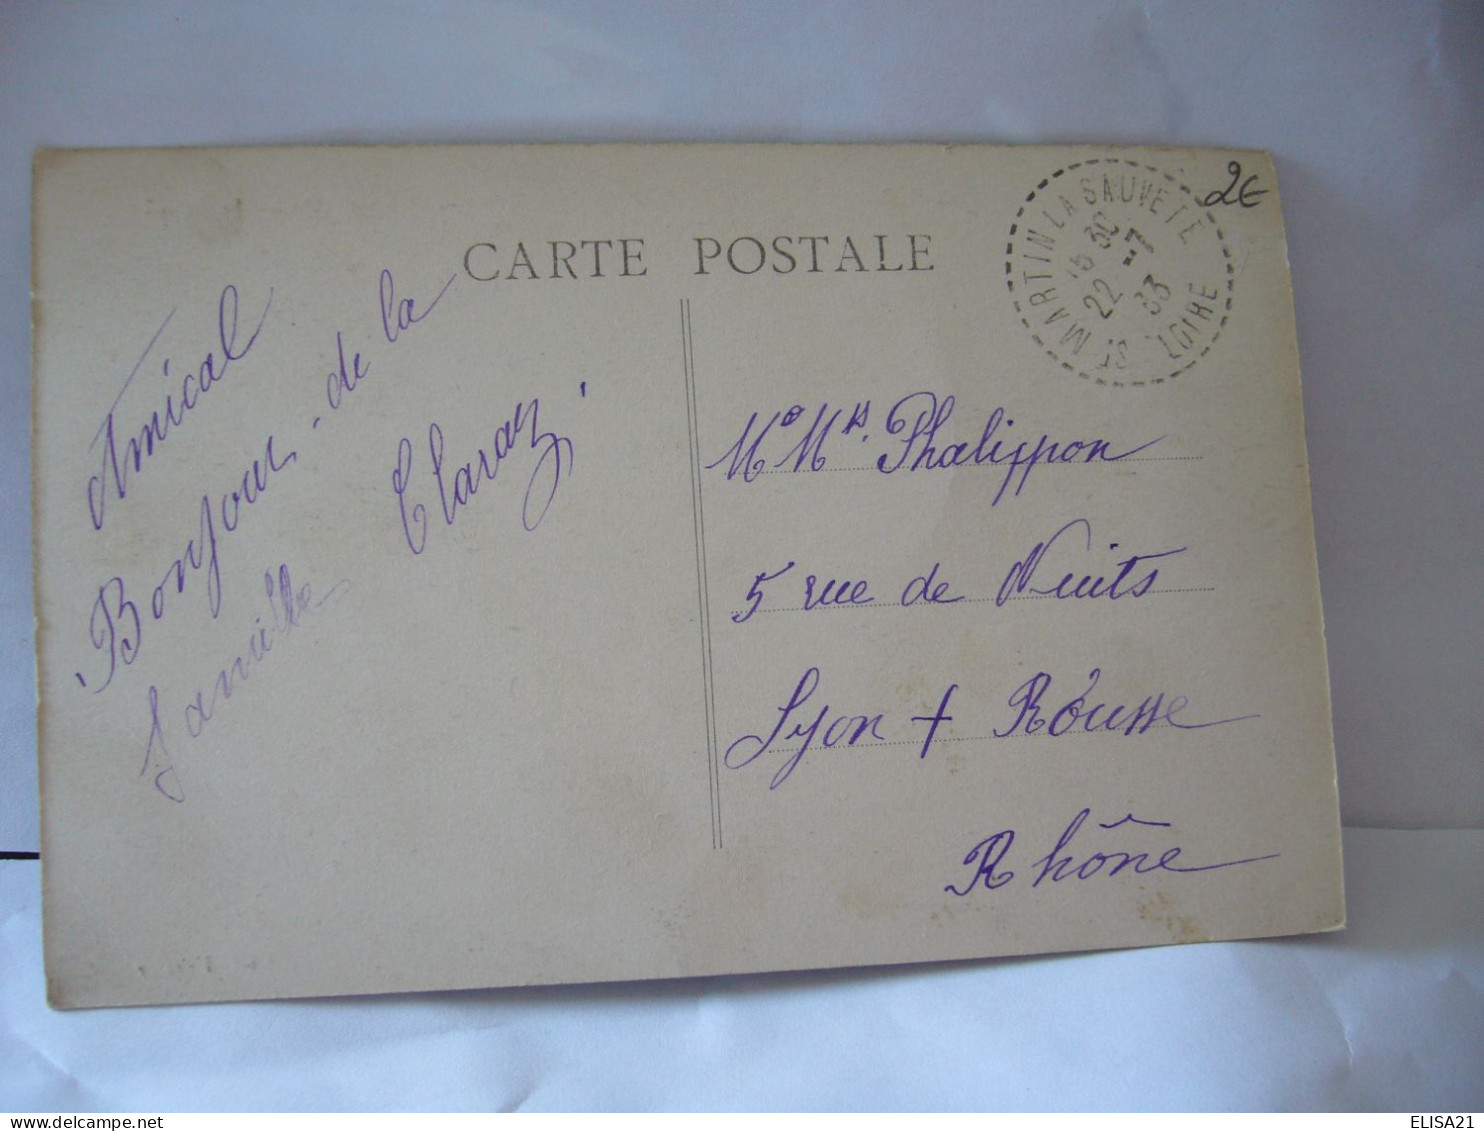 CARTE POSTALE
2€
ST MARTIN LA SAUVETE
15 30
22 -7
33
LOIRE
Amical
Bonjour de la
famille Claray
Phalippon
5 rue de Nuits
Lyon + Rousse
Rhône
ELISA21